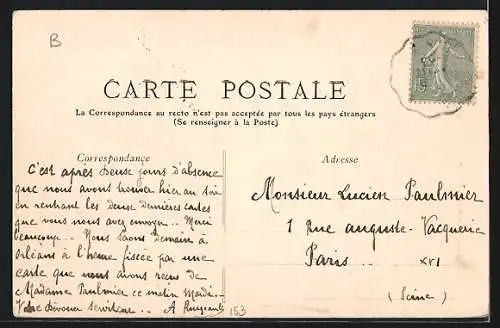 B
CARTE POSTALE
La Correspondance au recto n'est pas acceptée par tous les pays étrangers
(Se renseigner à la Poste)
Correspondance
C'est après deux jours d'absence
que nous avons trouver hier au soir
en rentrant les deux dernières cartes
que vous nous avez envoyer.. Merci
beaucoup.. Nous serons demain à
Orléans à l'heure fixée par une
carte que nous avons reçu de
Madame Paulmier ce matin Mardi..
Votre dévouer serviteur.. A
153
Adresse
Monsieur Lucien Paulmier
1 Rue auguste-Vacquerie
Paris.. XVI
(Seine)
15